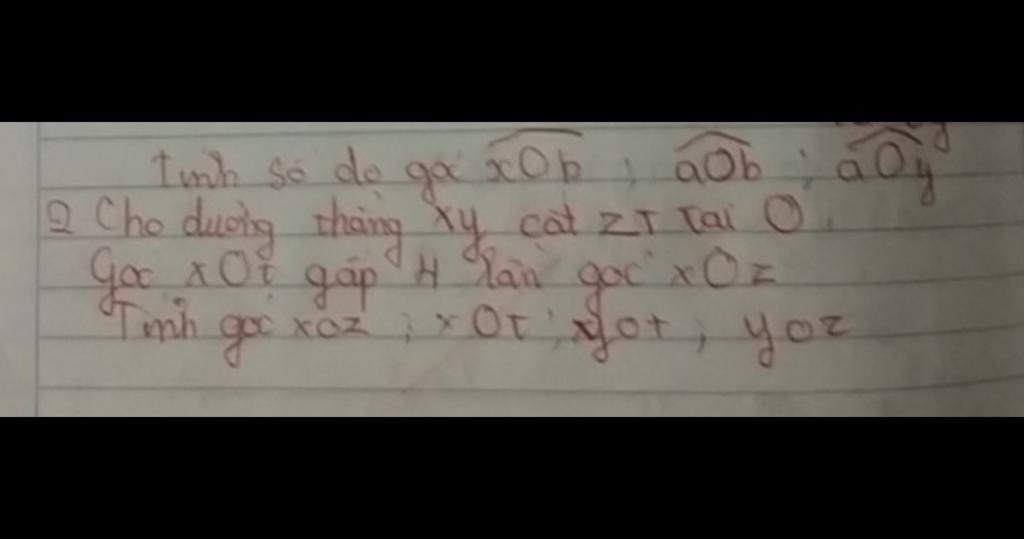 Tính số đo góc xOb ; aOb ; aOy
2 Cho đường thẳng xy cắt zT tại O.
Góc xOt gấp 4 lần góc xOz
Tính góc xOz ; xOt ; yOt ; yOz